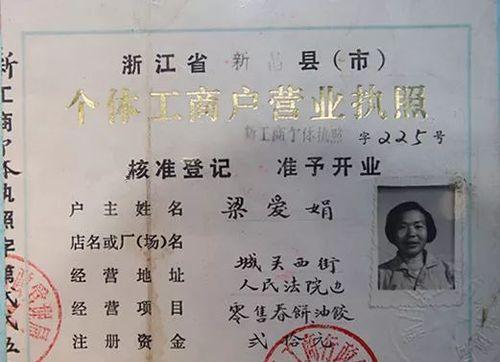 浙江省新昌县(市)
个体工商户营业执照
新工商个体执照 字225号
核准登记 准予开业
户主姓名 梁爱娟
店名或厂(场)名
经营地址 城关西街
人民法院边
经营项目 零售春饼油饺
注册资金 贰拾元
新工商个体执照字第贰贰五